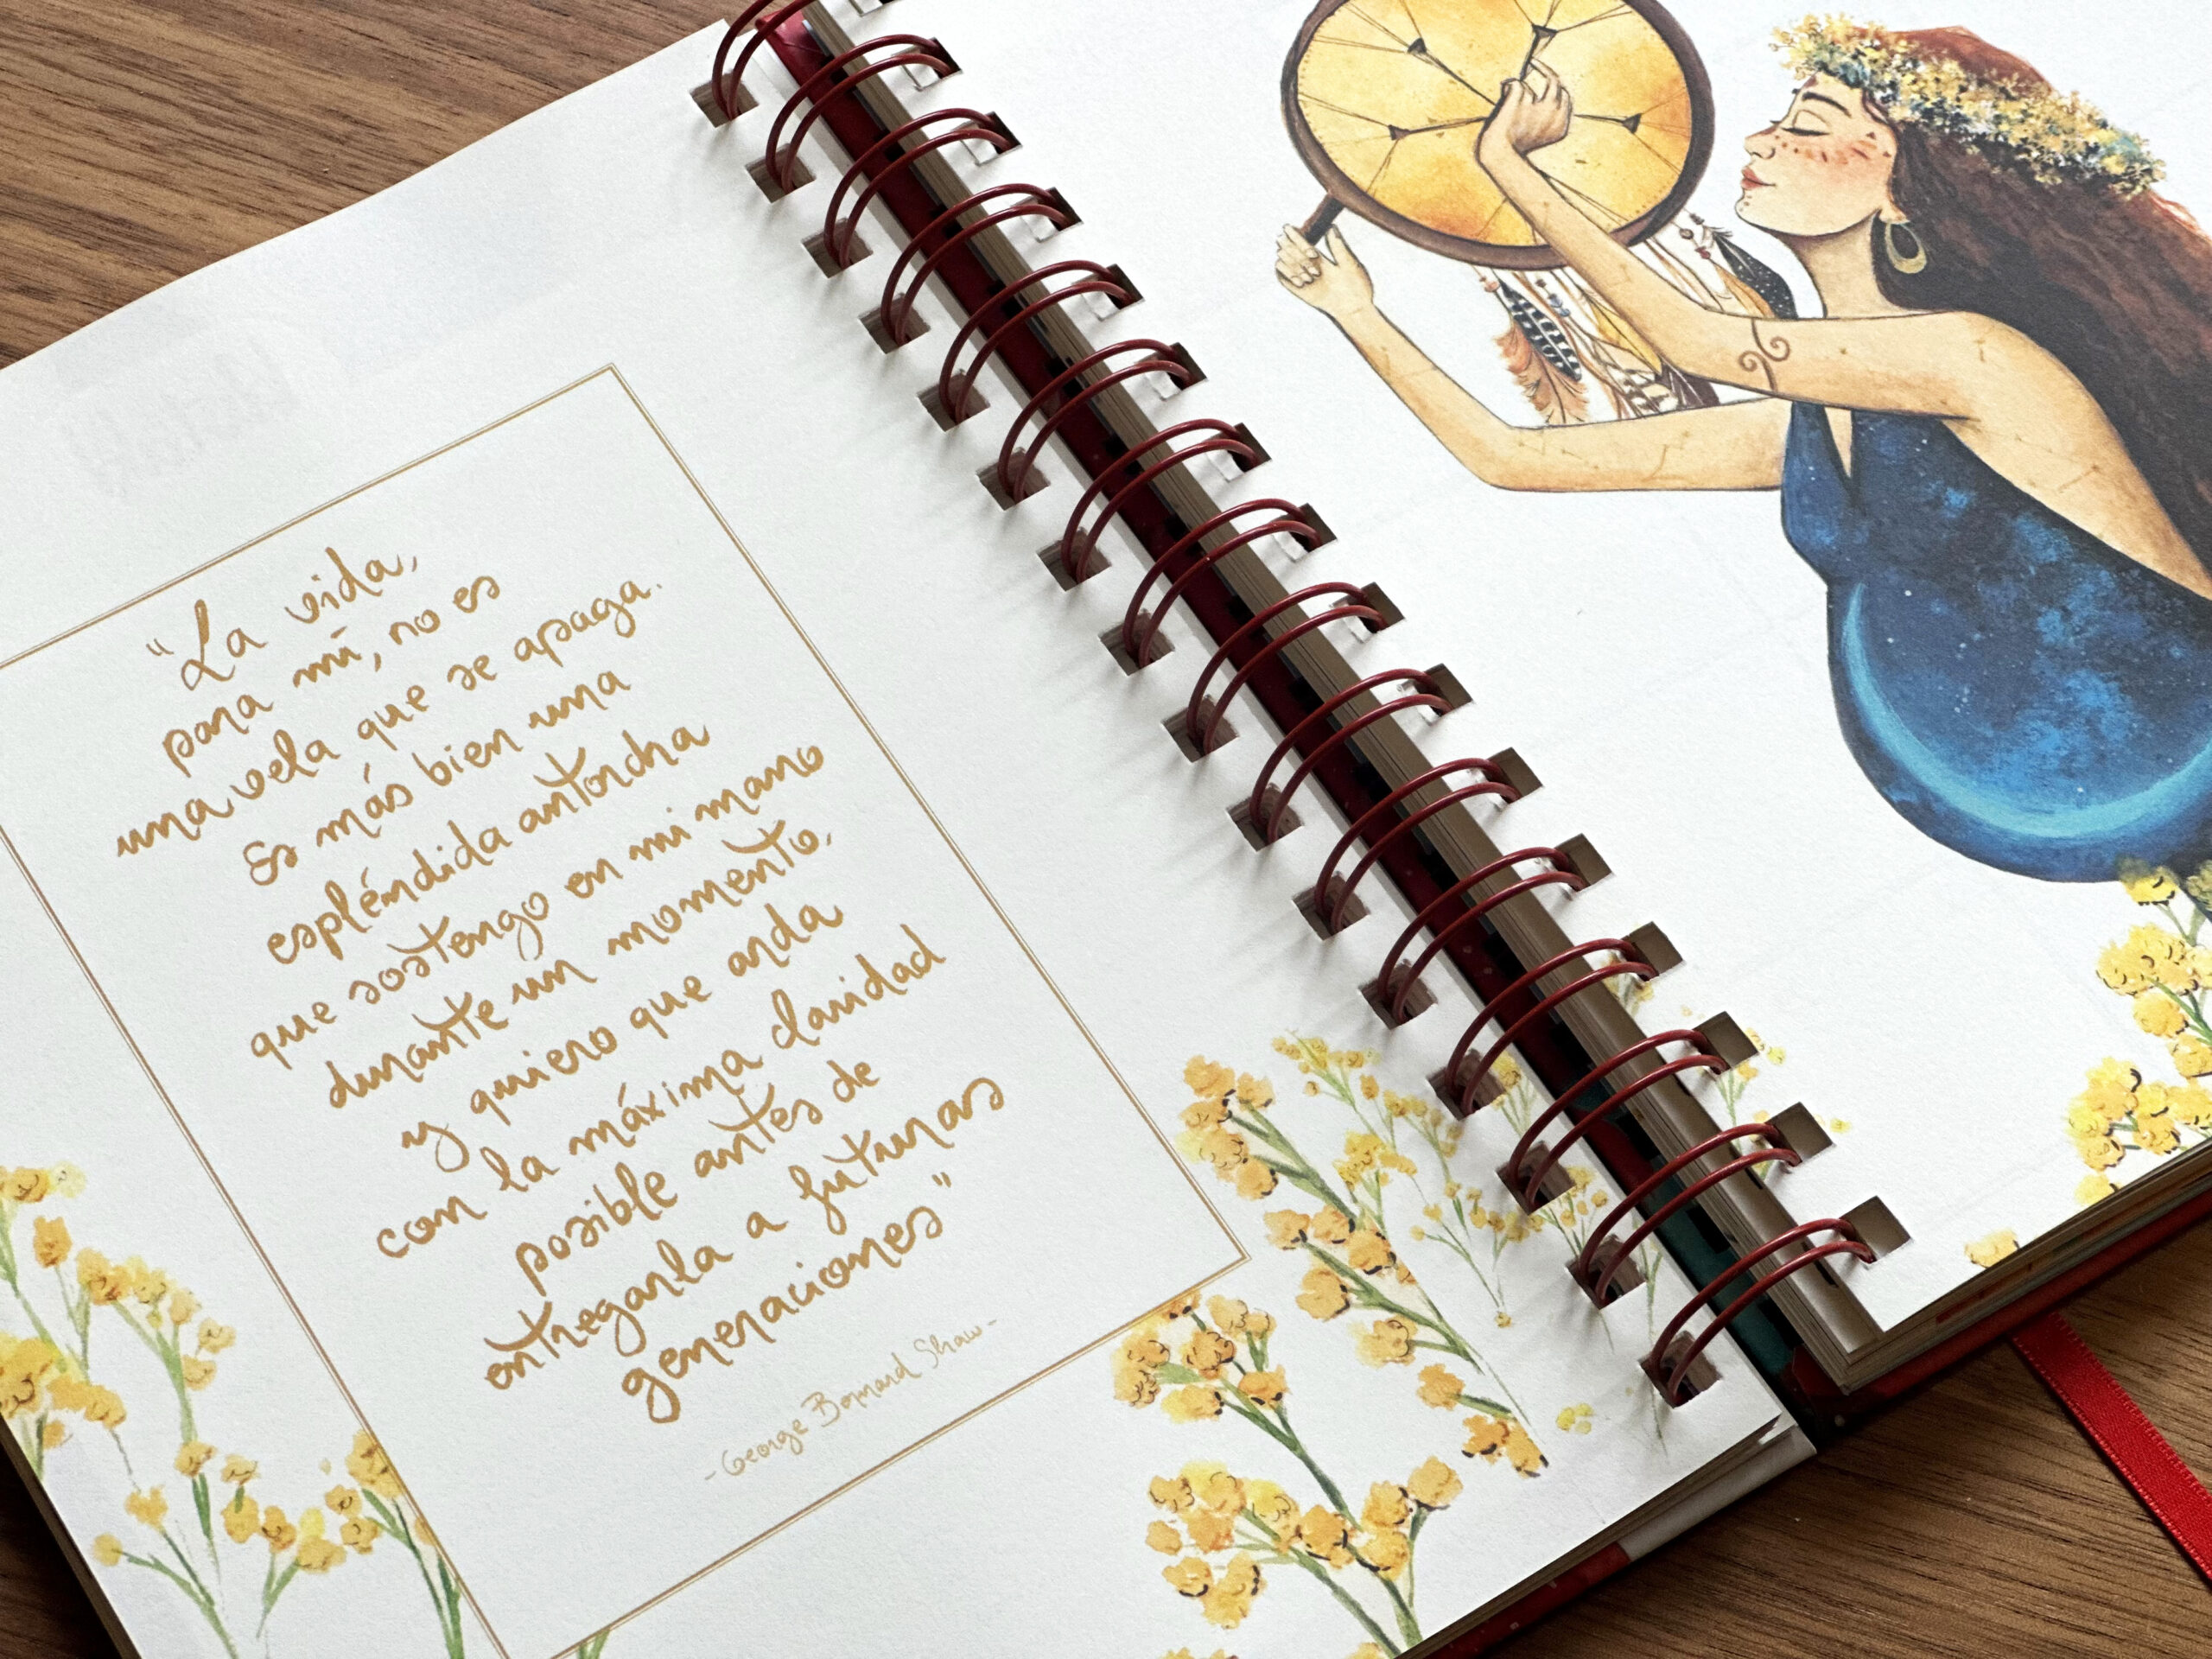 "La vida,
para mí, no es
una vela que se apaga.
Es más bien una
espléndida antorcha
que sostengo en mi mano
durante un momento,
y quiero que arda
con la máxima claridad
posible antes de
entregarla a futuras
generaciones"
-George Bernard Shaw-